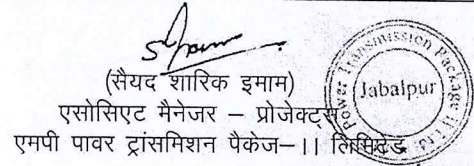 (सैयद शारिक इमाम)
एसोसिएट मैनेजर – प्रोजेक्ट्स
एमपी पावर ट्रांसमिशन पैकेज–II लिमिटेड
Power Transmission Package II Ltd.
Jabalpur